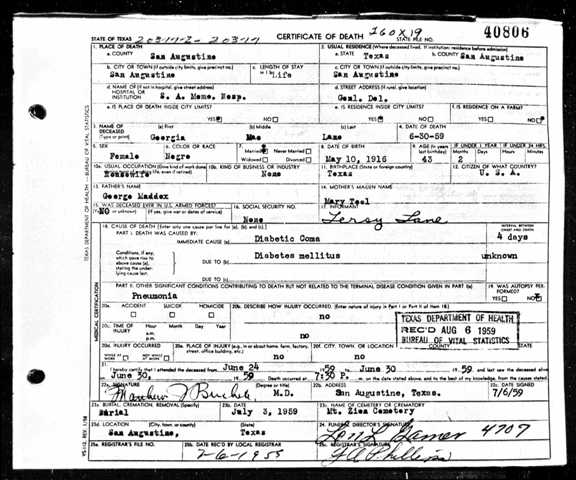 STATE OF TEXAS
CERTIFICATE OF DEATH
STATE FILE NO.
40806
1. PLACE OF DEATH
a. COUNTY San Augustine
2. USUAL RESIDENCE (Where deceased lived. If institution: residence before admission)
a. STATE Texas b. COUNTY San Augustine
b. CITY OR TOWN (If outside city limits, give precinct no.) San Augustine
c. LENGTH OF STAY Life
c. CITY OR TOWN (If outside city limits, give precinct no.) San Augustine
d. NAME OF (If not in hospital, give street address) HOSPITAL OR INSTITUTION S. A. Meme. Hosp.
d. STREET ADDRESS (If rural, give location) Genl. Del.
e. IS PLACE OF DEATH INSIDE CITY LIMITS? YES NO
e. IS RESIDENCE INSIDE CITY LIMITS? YES NO
f. IS RESIDENCE ON A FARM? YES NO
3. NAME OF DECEASED (Type or print)
(a) First Georgia
(b) Middle Mae
(c) Last Lane
4. DATE OF DEATH 6-30-59
5. SEX Female
6. COLOR OR RACE Negro
7. Married Never Married Widowed Divorced
8. DATE OF BIRTH May 10, 1916
9. AGE (In years last birthday) 43
IF UNDER 1 YEAR Months 2 Days
IF UNDER 24 HRS. Hours Minutes
10a. USUAL OCCUPATION (Give kind of work done Housewife
10b. KIND OF BUSINESS OR INDUSTRY None
11. BIRTHPLACE (State or foreign country) Texas
12. CITIZEN OF WHAT COUNTRY? U. S. A.
13. FATHER'S NAME George Maddox
14. MOTHER'S MAIDEN NAME Mary Teel
15. WAS DECEASED EVER IN U.S. ARMED FORCES? NO (If yes, give war or dates of service)
16. SOCIAL SECURITY NO. None
17. INFORMANT Leroy Lane
18. CAUSE OF DEATH [Enter only one cause per line for (a), (b), and (c).]
INTERVAL BETWEEN ONSET AND DEATH
PART I. DEATH WAS CAUSED BY:
IMMEDIATE CAUSE (a) Diabetic Coma 4 days
Conditions, if any, which gave rise to above cause (a), stating the underlying cause last.
DUE TO (b) Diabetes mellitus unknown
DUE TO (c)
PART II. OTHER SIGNIFICANT CONDITIONS CONTRIBUTING TO DEATH BUT NOT RELATED TO THE TERMINAL DISEASE CONDITION GIVEN IN PART I(a)
Pneumonia
19. WAS AUTOPSY PERFORMED? YES NO
20a. ACCIDENT SUICIDE HOMICIDE
20b. DESCRIBE HOW INJURY OCCURRED. (Enter nature of injury in Part I or Part II of item 18)
no
20c. TIME OF INJURY Hour Month Day Year a.m. p.m.
no
TEXAS DEPARTMENT OF HEALTH
REC'D AUG 6 1959
BUREAU OF VITAL STATISTICS
20d. INJURY OCCURRED WHILE AT WORK NOT WHILE AT WORK
20e. PLACE OF INJURY (e.g., in or about home, farm, factory, street, office building, etc.) no
20f. CITY, TOWN, OR LOCATION COUNTY no
21. I hereby certify that I attended the deceased from June 24 59 to June 30 1959
June 30, 59 Death occurred at 7:30 P.
22a. SIGNATURE (Degree or title) M.D.
22b. ADDRESS San Augustine, Texas.
22c. DATE SIGNED 7/6/59
23a. BURIAL, CREMATION, REMOVAL (Specify) Burial
23b. DATE July 3, 1959
23c. NAME OF CEMETERY OR CREMATORY Mt. Zion Cemetery
23d. LOCATION (City, town, or county) (State) San Augustine, Texas
24. FUNERAL DIRECTOR'S SIGNATURE 4707
25a. REGISTRAR'S FILE NO.
25b. DATE REC'D BY LOCAL REGISTRAR
25c. REGISTRAR'S SIGNATURE
TEXAS DEPARTMENT OF HEALTH - BUREAU OF VITAL STATISTICS
MEDICAL CERTIFICATION